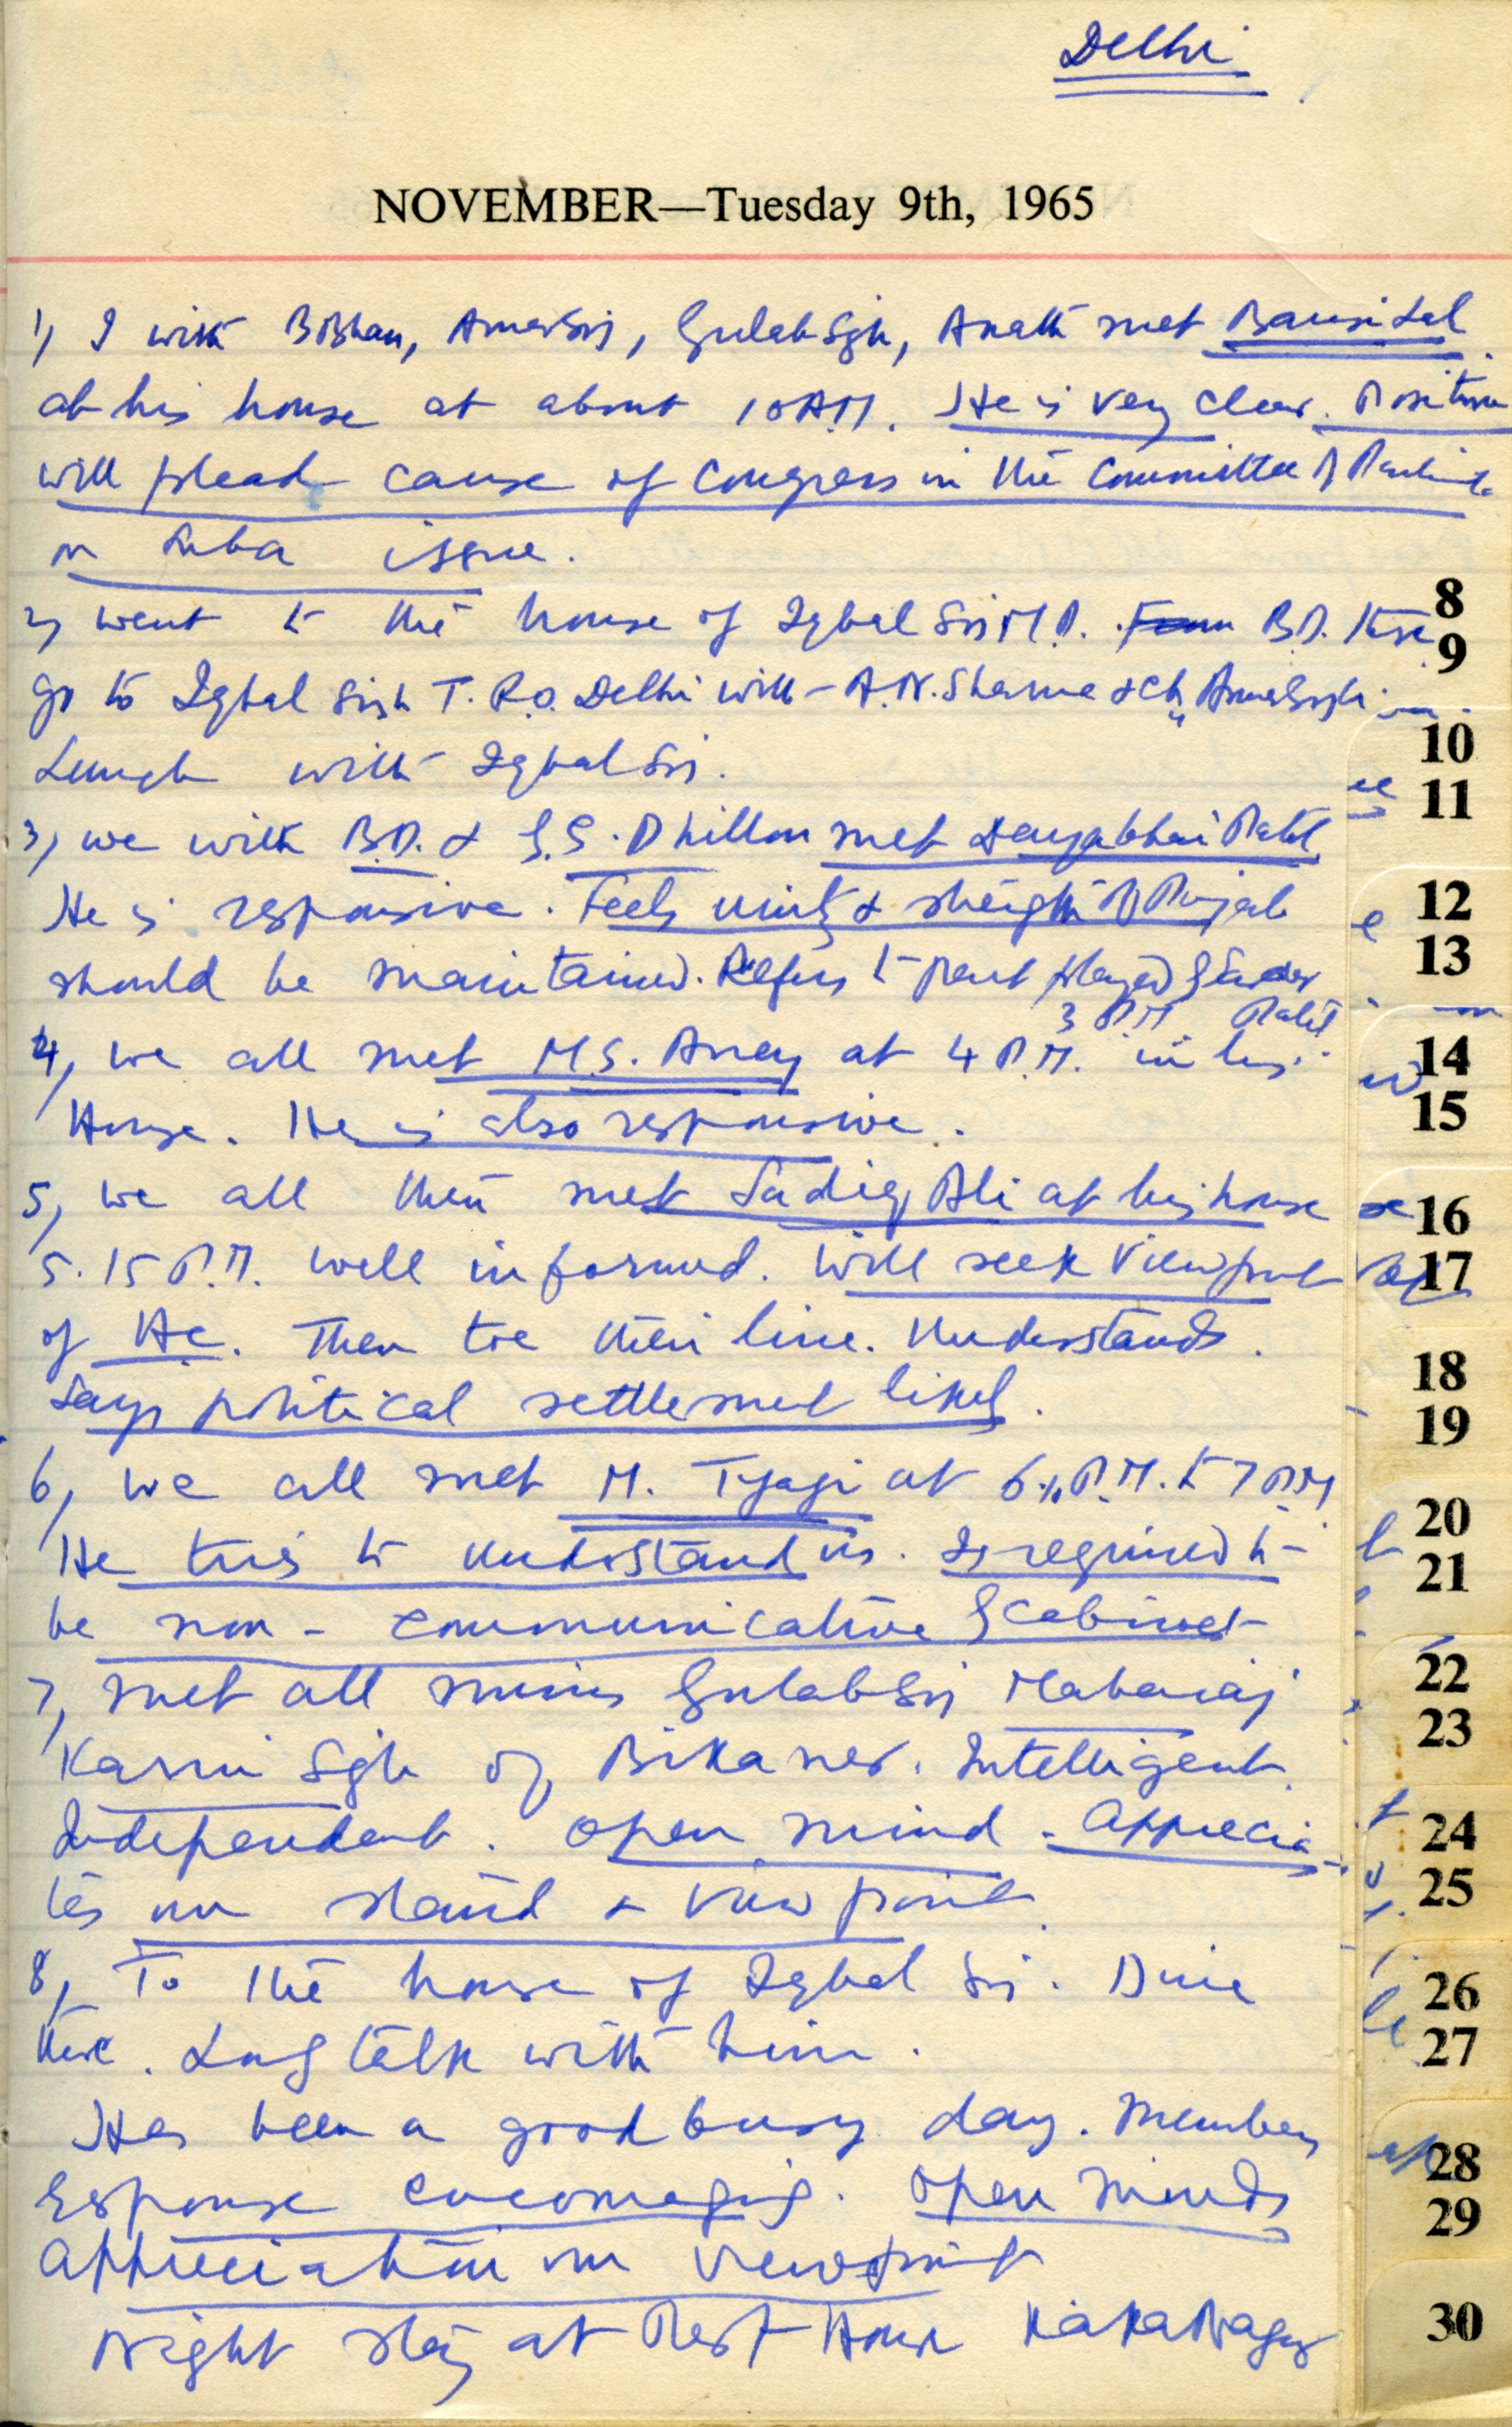 Delhi
NOVEMBER—Tuesday 9th, 1965
1, I with BBhan, Amar Sri, Gulab Sgh, met Bansi Lal
at his house at about 10 A.M. He is very clear. Positive
will plead cause of Congress in the Committee of
on Suba issue.
2, went to the house of Iqbal Sri M.P. B.D.
go to Iqbal Singh Delhi with A.N. Sharma & Ch,
Lunch with Iqbal Sri.
3, we with B.D. & G.S. Dhillon met Dayabhai Patel
He is responsive. Feels unity & strength of Punjab
should be maintained. Refers to part played by Sardar
3 P.M. Patel
4, we all met M.S. Aney at 4 P.M. in his
House. He is also responsive.
5, we all then met Sadiq Ali at his house
5.15 P.M. well informed. Will seek viewpoint
of H.C. Then toe their line. Understands.
Says political settlement likely.
6, we all met M. Tyagi at 6 P.M. to 7 P.M
He tries to understand us. Is required to
be non-communicative by Cabinet
7, met all minus Gulab Sri Maharaj
Karni Sgh of Bikaner. Intelligent.
Independent. Open mind. Apprecia-
tes our stand & view point.
8, To the house of Iqbal Sri. Dine
there. Long talk with him.
Has been a good busy day. Members
response encouraging. Open minds
appreciation our viewpoint
Night stay at Rest House Kaka Nagar
8
9
10
11
12
13
14
15
16
17
18
19
20
21
22
23
24
25
26
27
28
29
30